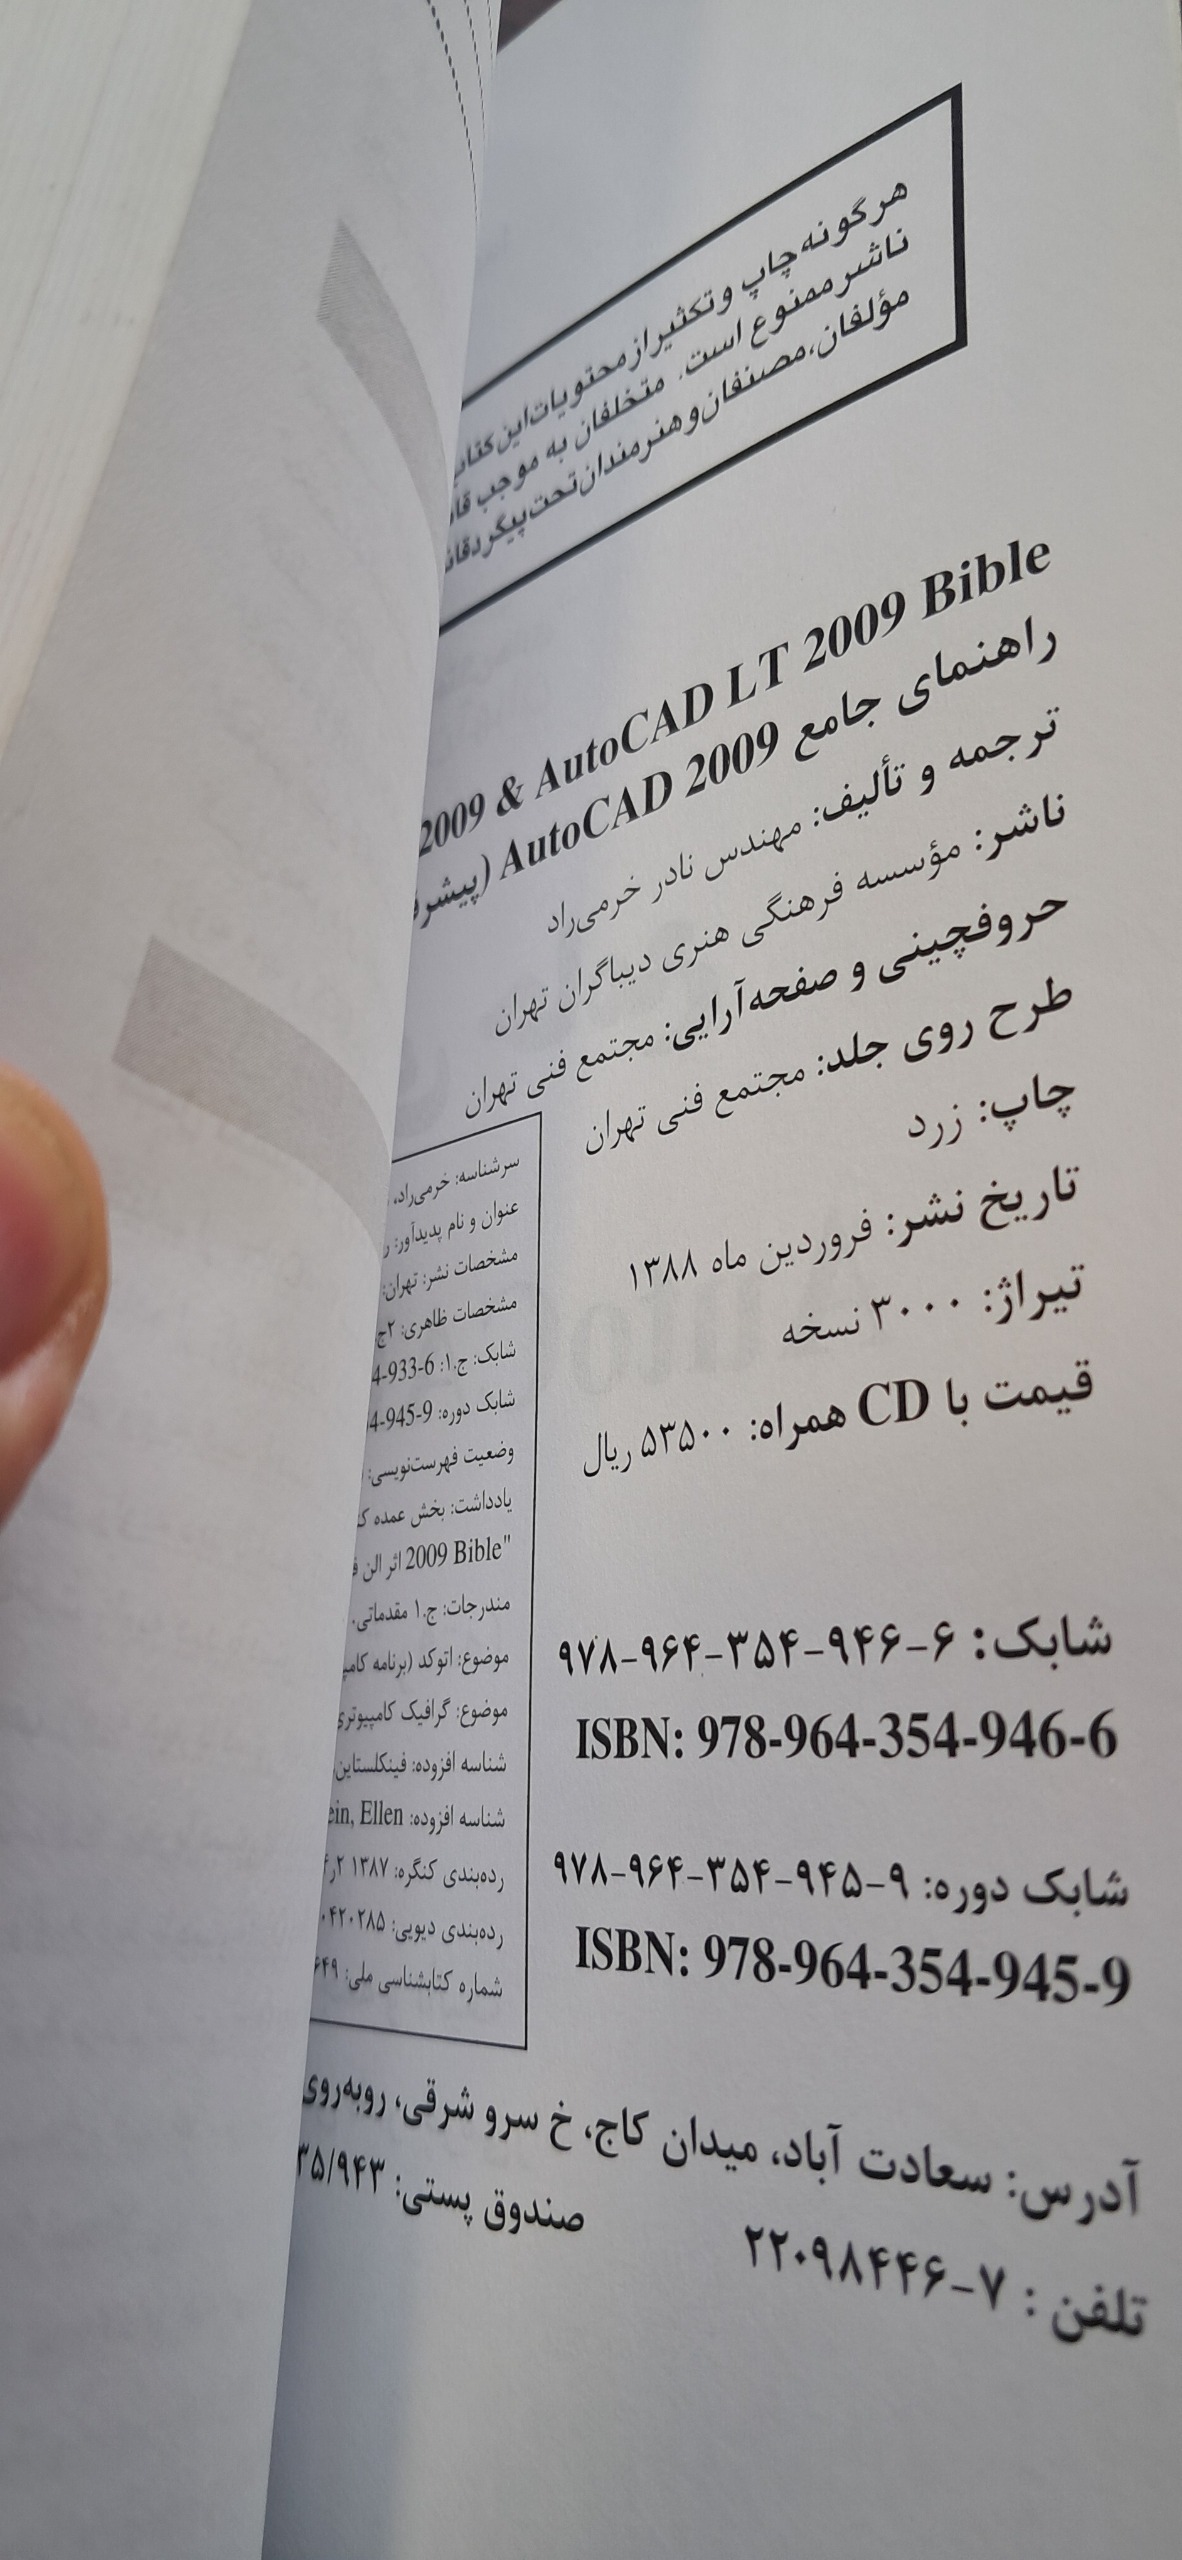 هرگونه چاپ و تکثیر از محتویات این کتاب
ناشر ممنوع است. متخلفان به موجب
مؤلفان، مصنفان و هنرمندان تحت پیگرد
2009 & AutoCAD LT 2009 Bible
راهنمای جامع AutoCAD 2009 (
ترجمه و تألیف: مهندس نادر خرمی‌راد
ناشر: مؤسسه فرهنگی هنری دیباگران تهران
حروفچینی و صفحه‌آرایی: مجتمع فنی تهران
طرح روی جلد: مجتمع فنی تهران
چاپ: زرد
تاریخ نشر: فروردین ماه ۱۳۸۸
تیراژ: ۳۰۰۰ نسخه
قیمت با CD همراه: ۵۳۵۰۰ ریال
سرشناسه: خرمی‌راد،
عنوان و نام پدیدآور:
مشخصات نشر: تهران:
مشخصات ظاهری: ۲ج
شابک: ج.۱: 4-933-6
شابک دوره: 4-945-9
وضعیت فهرست‌نویسی:
یادداشت: بخش عمده
2009 Bible" اثر الن
مندرجات: ج.۱ مقدماتی.
موضوع: اتوکد (برنامه
موضوع: گرافیک کامپیوتری
شناسه افزوده: فینکلستاین
شناسه افزوده: ein, Ellen
رده‌بندی کنگره: ۱۳۸۷
رده‌بندی دیویی: ۰۴۲۰۲۸۵
شماره کتابشناسی ملی: ۶۴۹
شابک: ۹۷۸-۹۶۴-۳۵۴-۹۴۶-۶
ISBN: 978-964-354-946-6
شابک دوره: ۹۷۸-۹۶۴-۳۵۴-۹۴۵-۹
ISBN: 978-964-354-945-9
آدرس: سعادت آباد، میدان کاج، خ سرو شرقی، روبه‌روی
تلفن : ۷-۲۲۰۹۸۴۴۶ صندوق پستی: ۳۵/۹۴۳